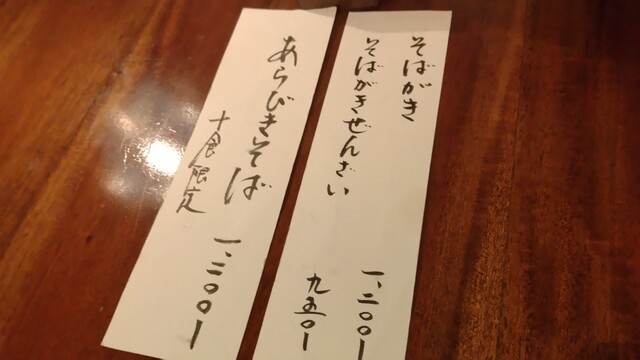 そばがき 一、二〇〇ー
そばがきぜんざい 九五〇ー
あらびきそば 一、二〇〇ー
十食限定